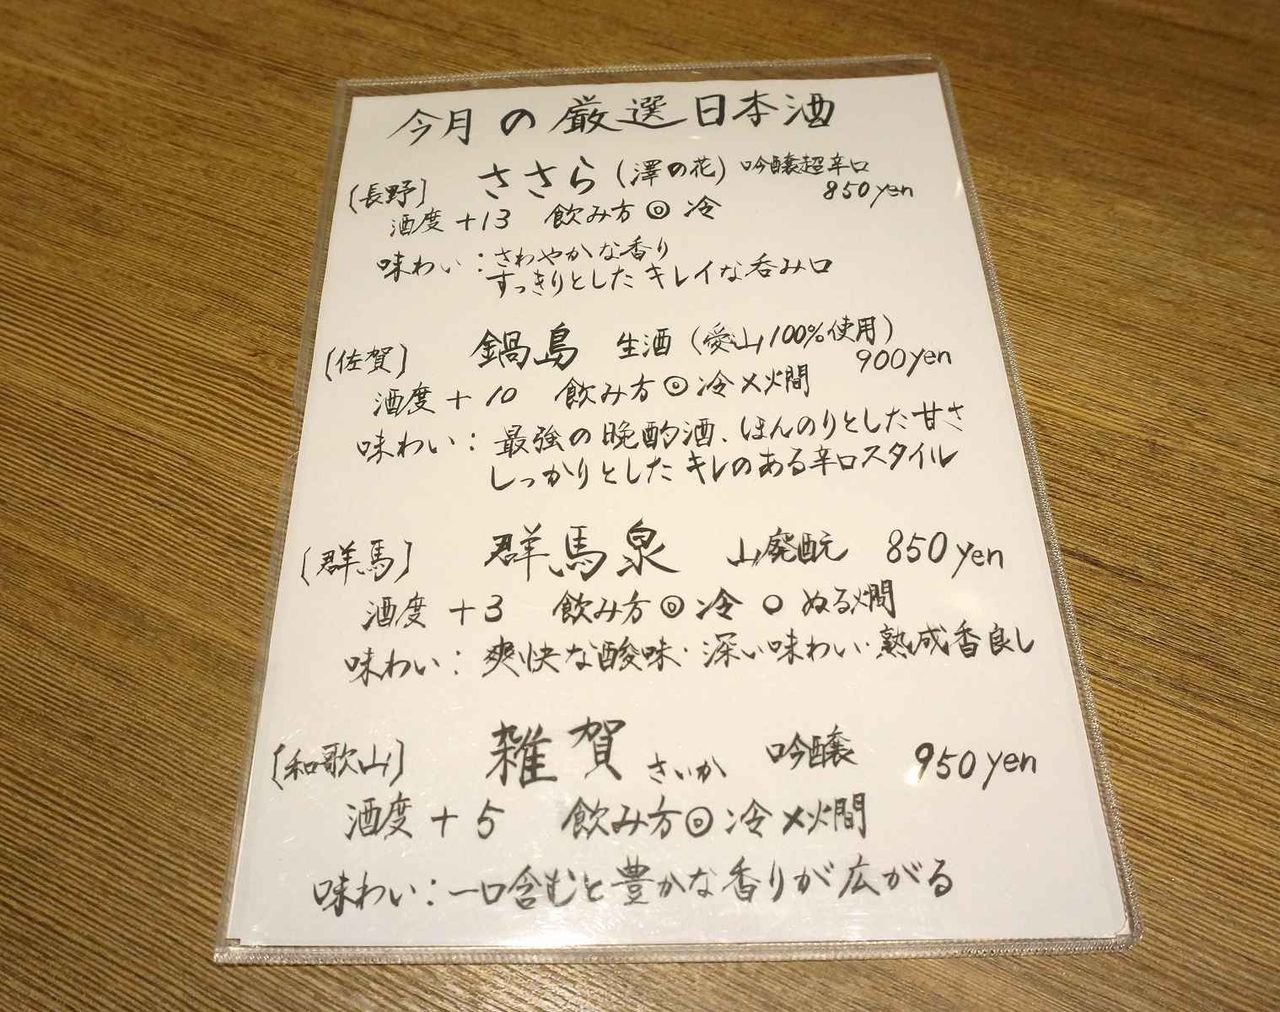 今月の厳選日本酒
[長野] ささら(澤の花) 吟醸超辛口
850yen
酒度+13 飲み方◎冷
味わい:さわやかな香り
すっきりとしたキレイな呑み口
[佐賀] 鍋島 生酒(愛山100%使用)
900yen
酒度+10 飲み方◎冷×燗
味わい:最強の晩酌酒、ほんのりとした甘さ
しっかりとしたキレのある辛口スタイル
[群馬] 群馬泉 山廃酛 850yen
酒度+3 飲み方◎冷○ぬる燗
味わい:爽快な酸味・深い味わい・熟成香良し
[和歌山] 雑賀 さいか 吟醸 950yen
酒度+5 飲み方◎冷×燗
味わい:一口含むと豊かな香りが広がる